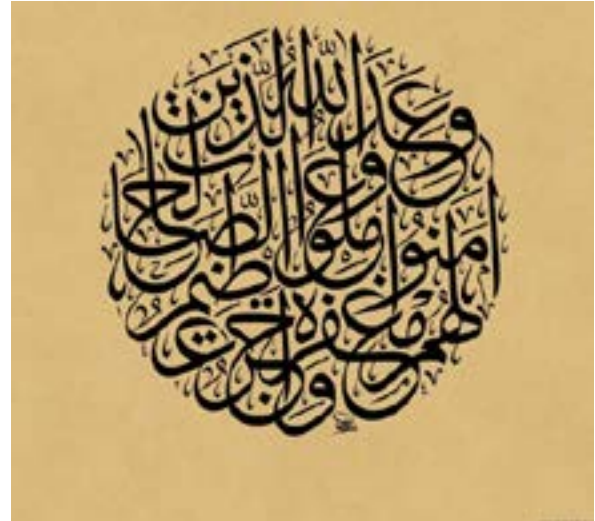 وعد الله الذين
آمنوا وعملوا الصالحات
لهم مغفرة وأجر عظيم